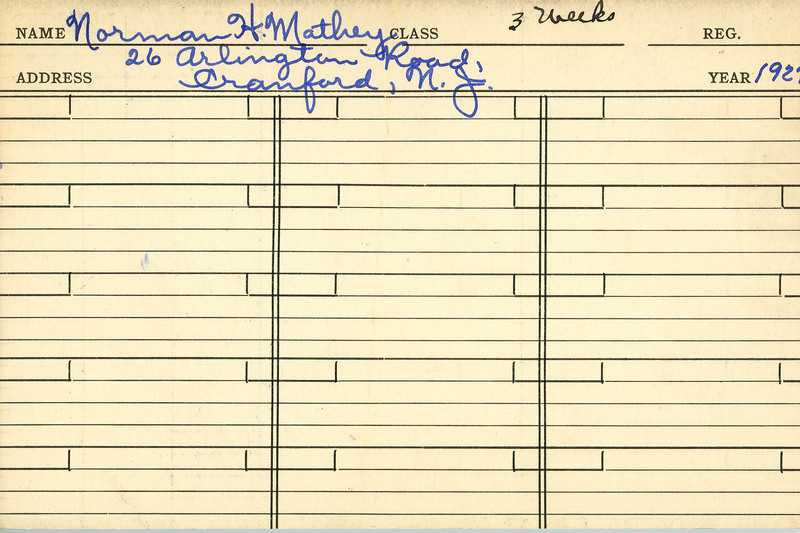 NAME Norman H. Mathey CLASS 3 Weeks REG.
26 Arlington Road,
ADDRESS Cranford, N. J. YEAR